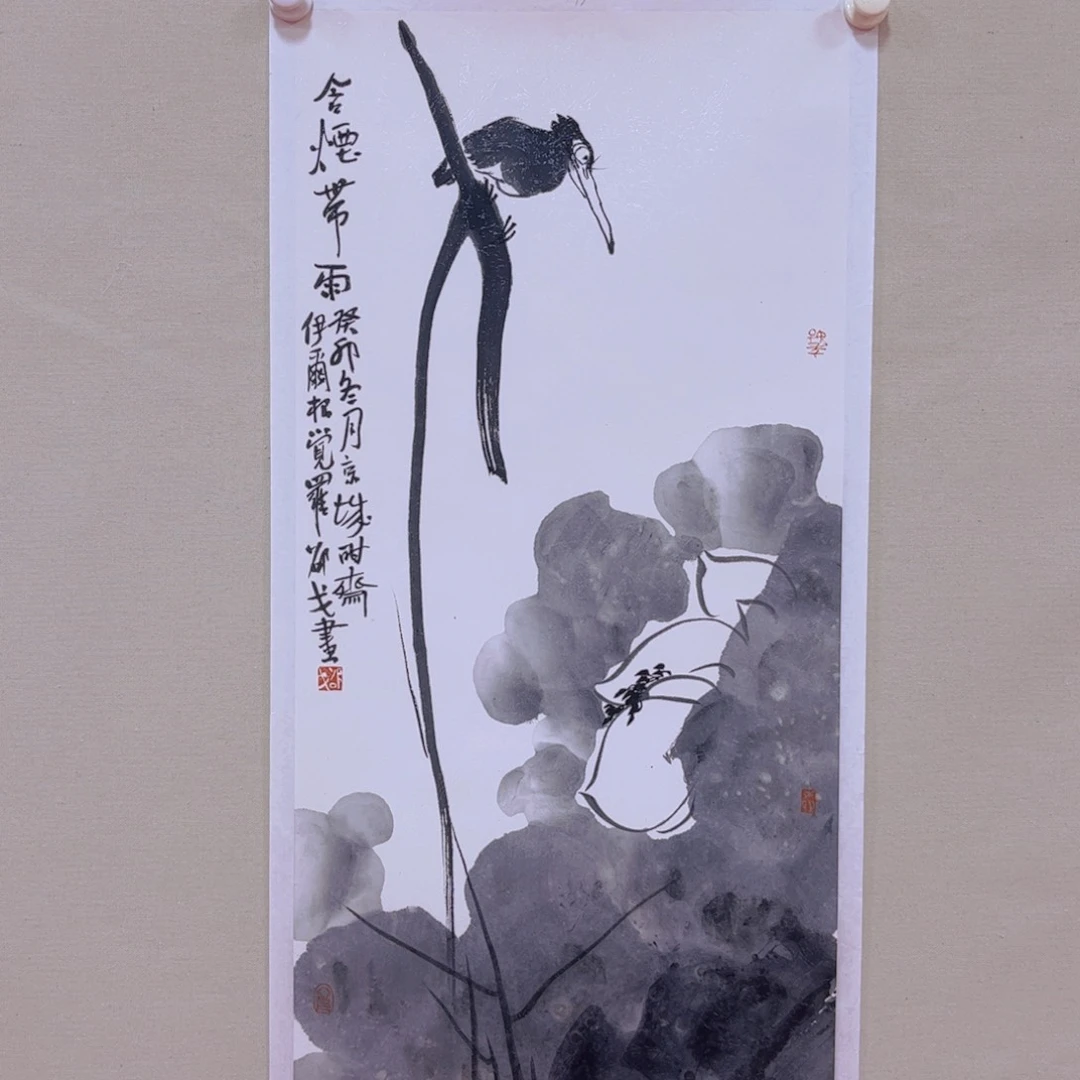 含煙帶雨
癸卯冬月京城齋
伊爾根覺羅邵戈畫